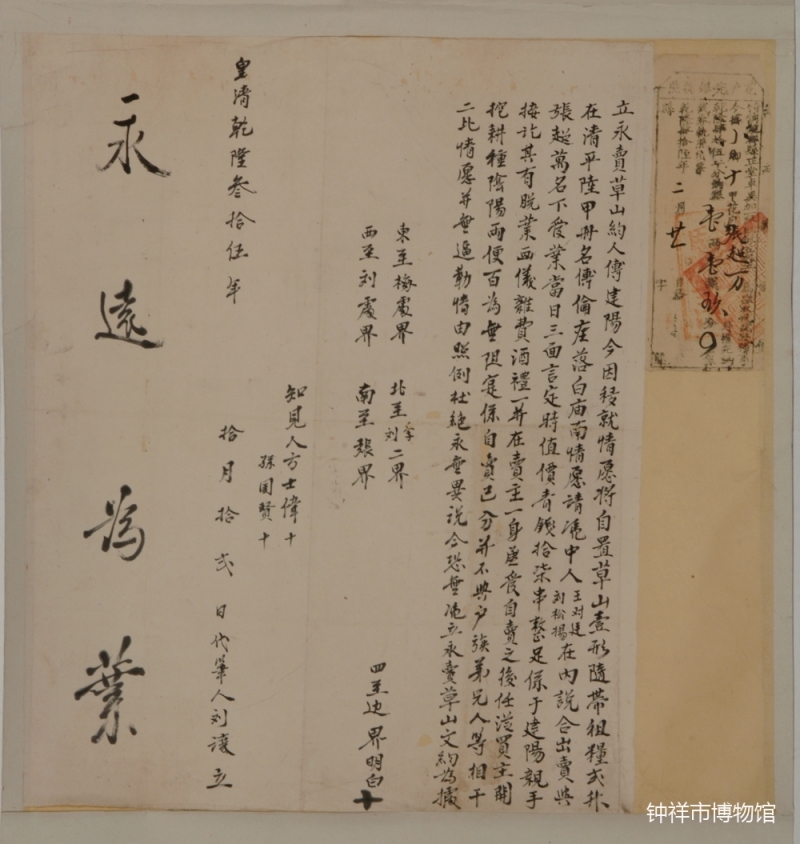 立永賣草山約人傅建陽今因移就情愿将自置草山壹形隨帶祖糧弍升
在清平陸甲册名傅倫座落白庙南情愿請凴中人王对廷刘松楊在内説合出賣與
張超萬名下爰業當日三面言定時值價青錢拾柒串整足係于建陽親手
接訖其有脱業画儀雜費酒禮一并在賣主一身承爰自賣之後任從買主開
挖耕種陰陽兩便百為無阻寔係自賣己分并不與户族弟兄人等相干
二比情愿并無逼勒情由照例杜絶永無異説今恐無凴立永賣草山文約為據
四至边界明白十
東至梅處界
北至李刘二界
西至刘處界
南至張界
知見人方士偉十
孫国賢十
皇清乾隆叁拾伍年
拾月拾弍日代筆人刘讓立
永遠為業
张超万
二月廿
钟祥市博物馆